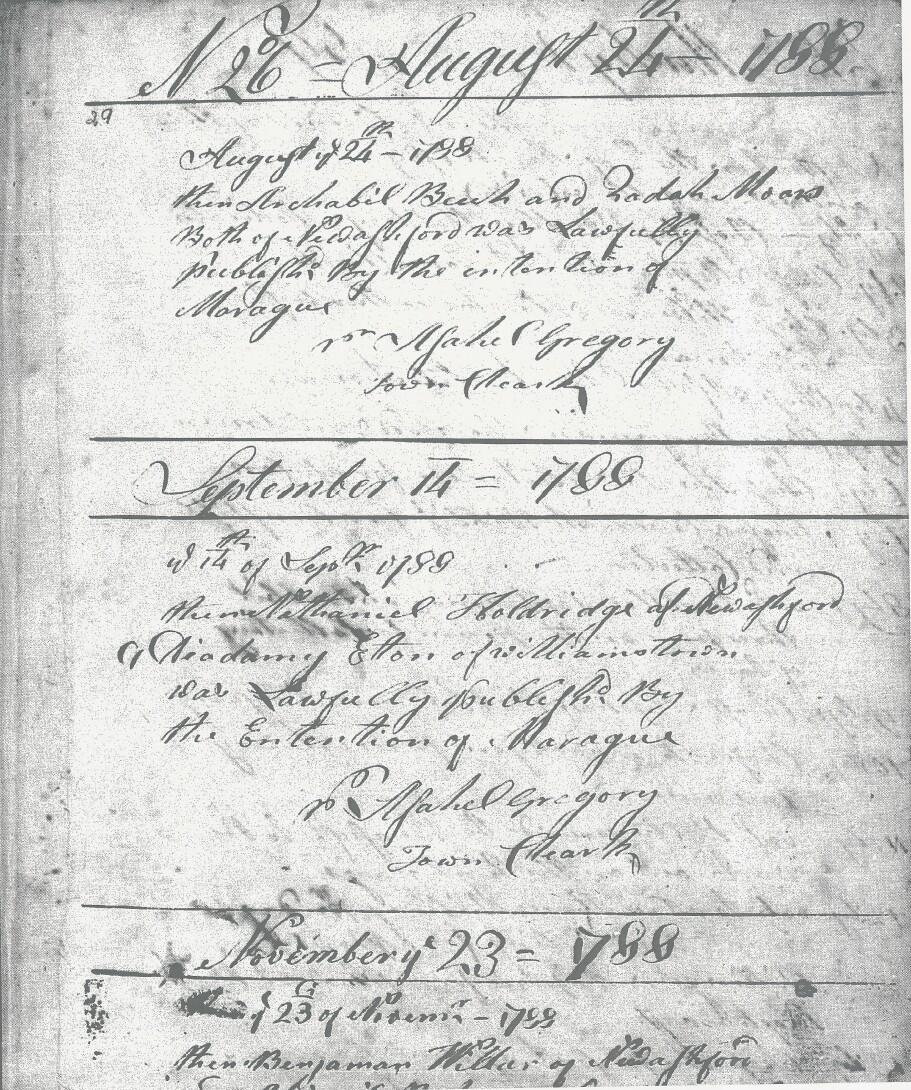 No 26 = August 24th 1788
29
August ye 24th - 1788
then Archabil Beach and Zadah Moors
Both of Newashford was Lawfully
publishd By the intention of
Marague
pr Asahel Gregory
Town Cleark
September 14 = 1788
ye 14th of Sepbr 1788
then Nathaniel Holdridge of Newashford
& Eton of williamstown
was Lawfully publishd By
the Entention of Marague
pr Asahel Gregory
Town Cleark
November ye 23 = 1788
ye 23 of Novemr - 1788
then Benjaman of Newashford